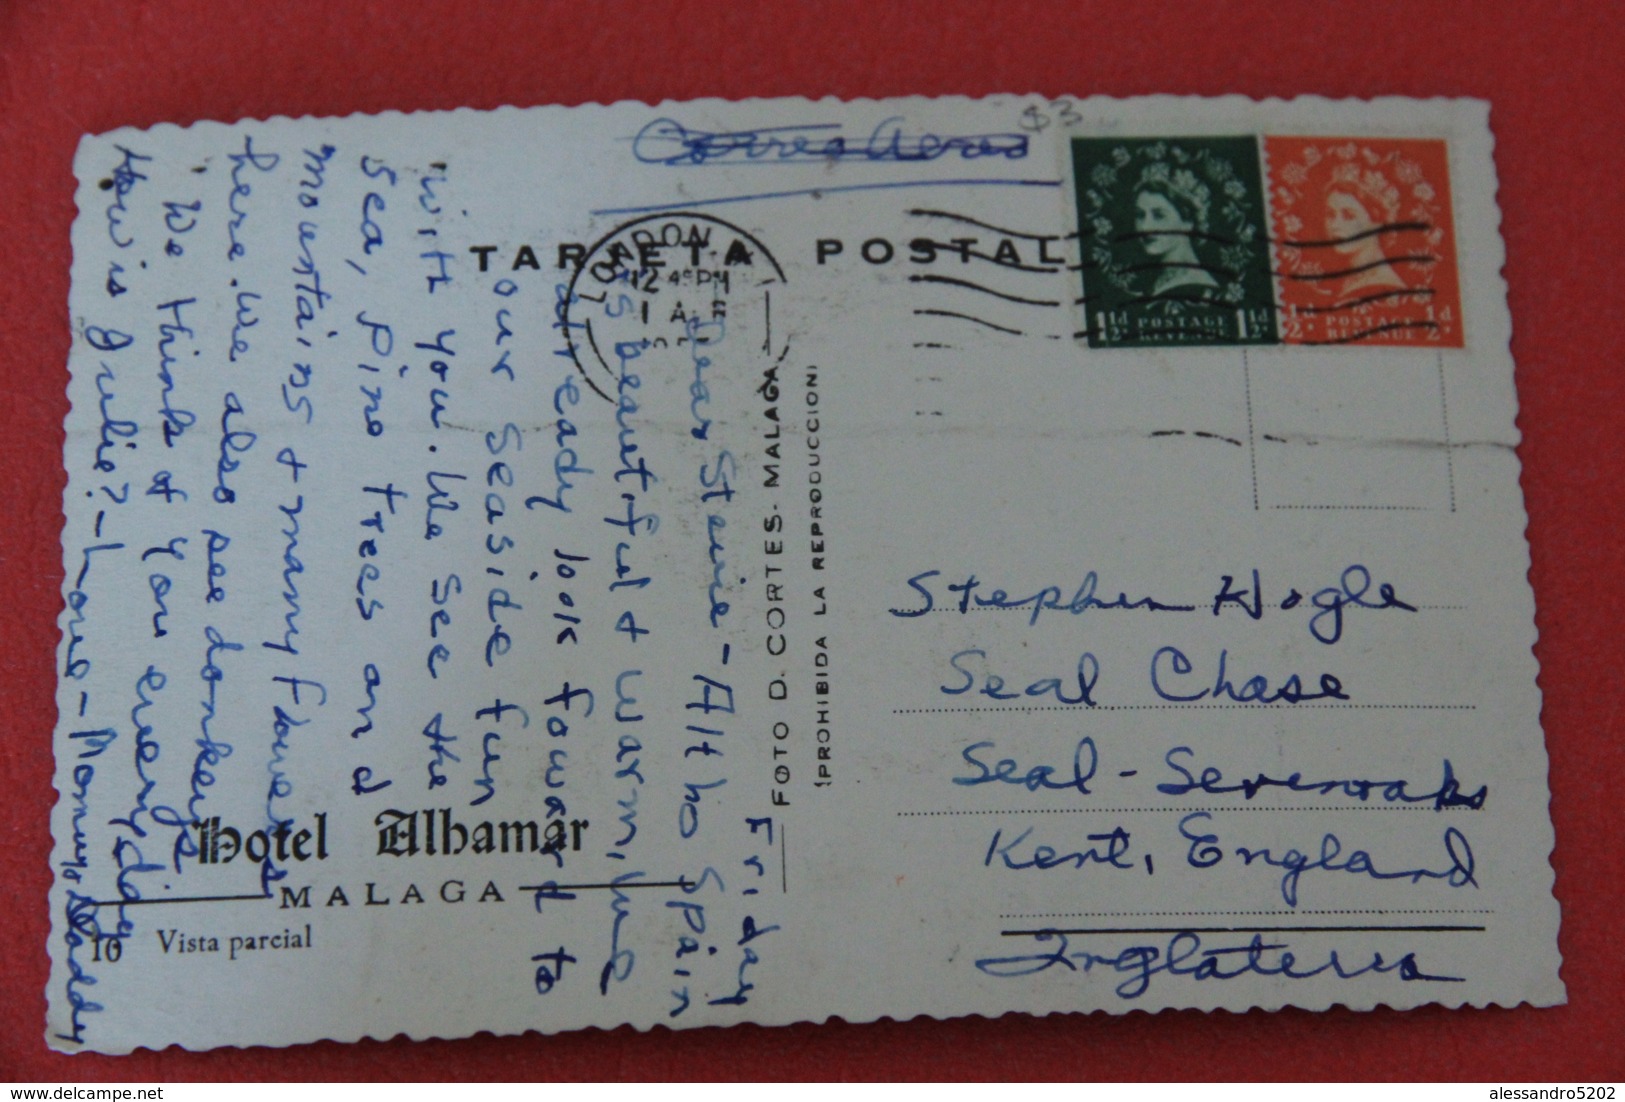 Correo Aereo
$3
TARJETA POSTAL
LONDON
12 45 PM
1 A
1½d POSTAGE REVENUE 1½d
½d POSTAGE REVENUE ½d
Friday
Dear Stevie - Altho Spain
is beautiful & warm, we
already look foward to
our seaside fun
with you. We see the
sea, pine trees and
mountains & many flowers
here. We also see donkeys
We think of you everyday
How is Julie? - Love - Mommy & Daddy
FOTO D. CORTES - MALAGA
(PROHIBIDA LA REPRODUCCION)
Stephen Hogle
Seal Chase
Seal - Sevenoaks
Kent, England
Inglaterra
Hotel Alhamar
MALAGA
10 Vista parcial
delcampe.net
alessandro5202